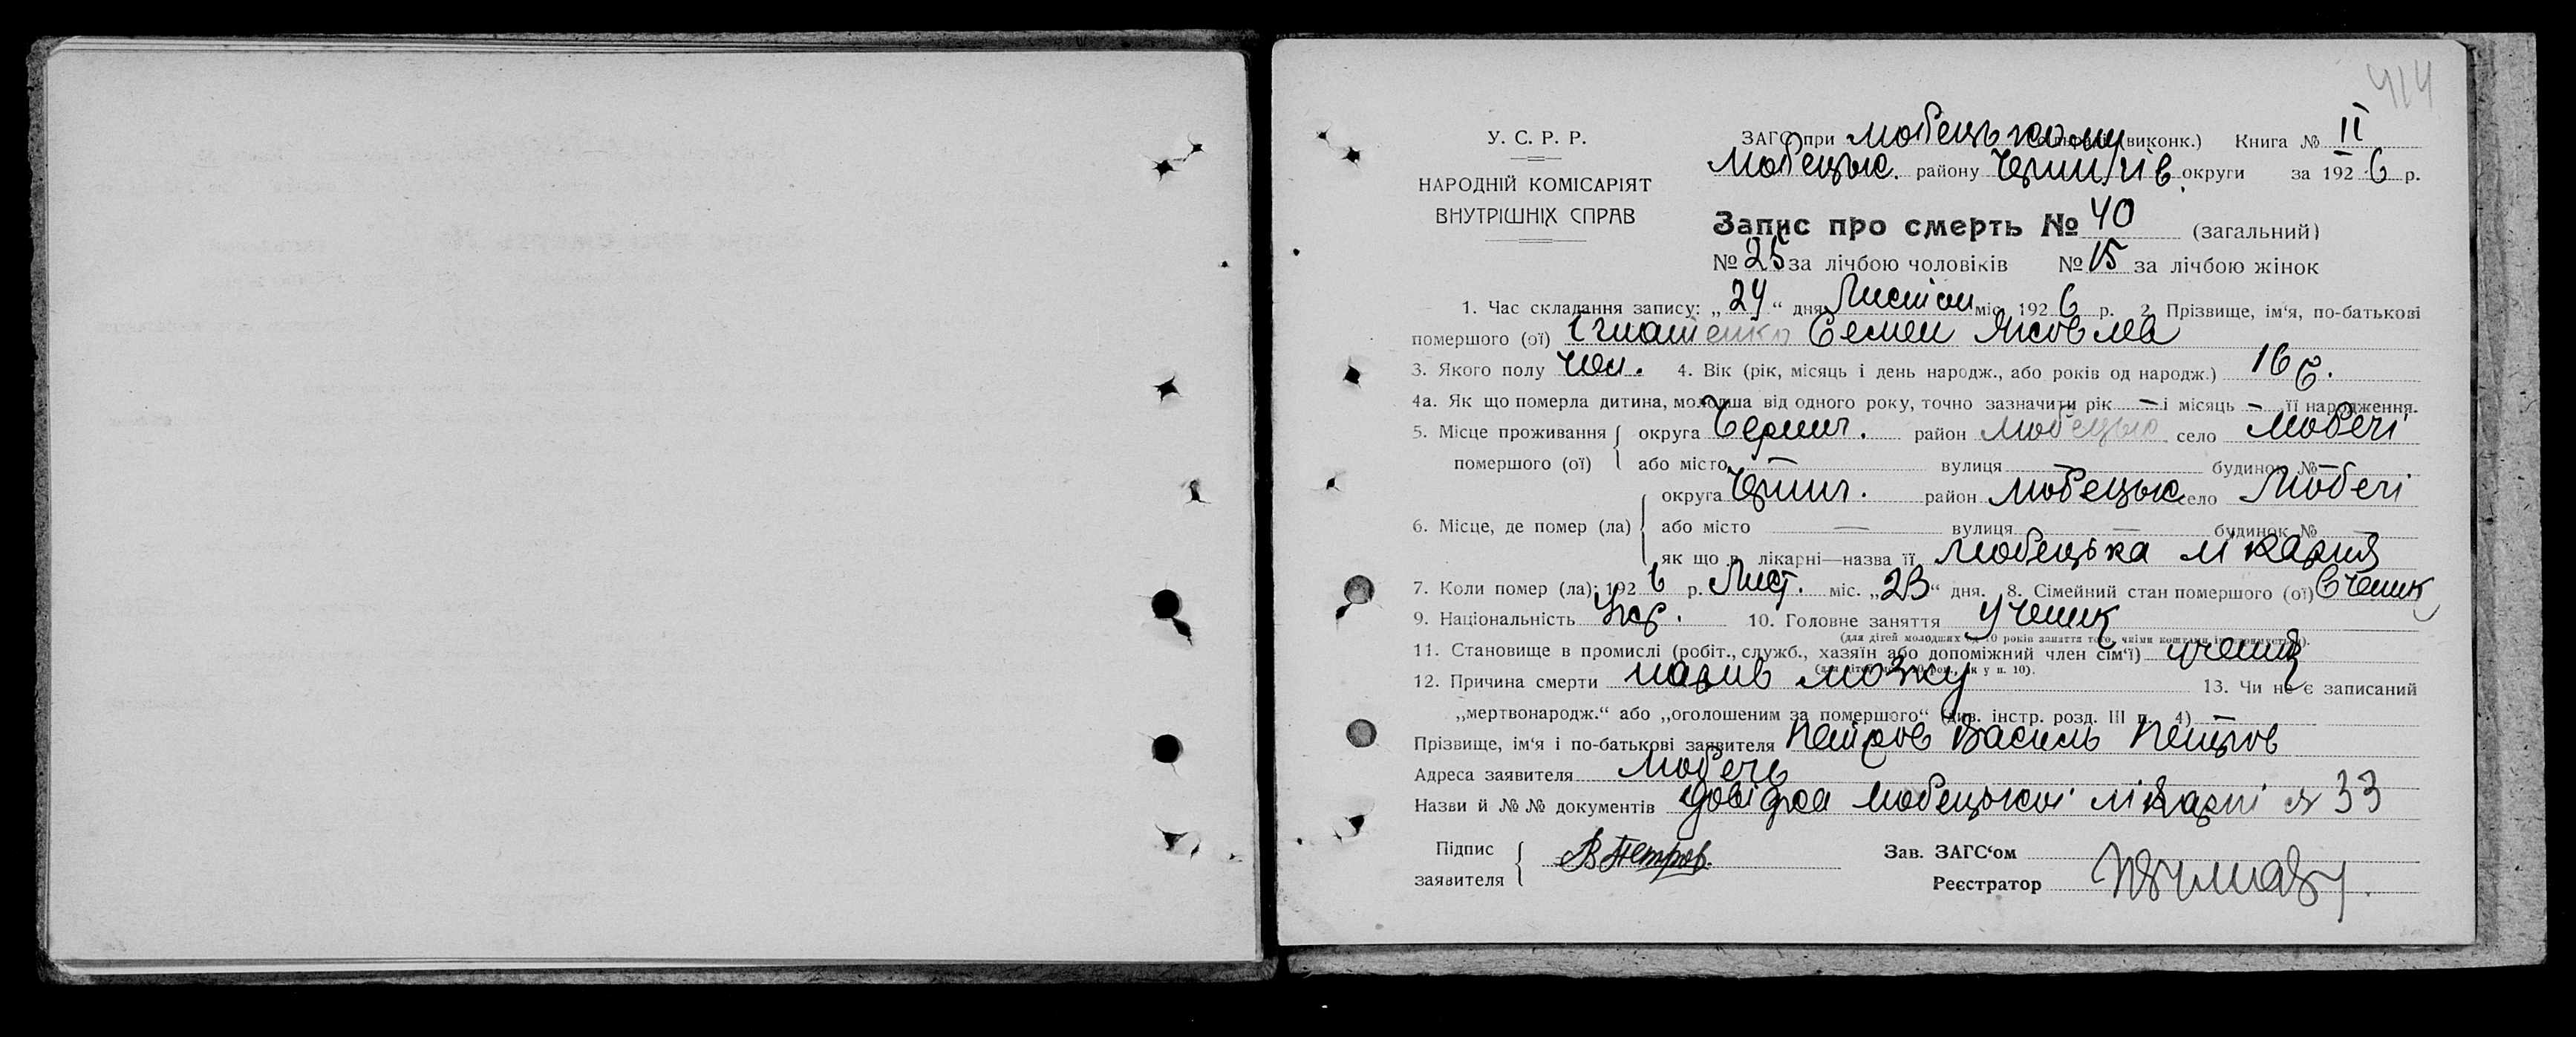 414
У. С. Р. Р.
НАРОДНІЙ КОМІСАРІЯТ
ВНУТРІШНІХ СПРАВ
ЗАГС при Любецькому (виконк.) Книга № II
Любецьк. району Черніг. округи за 1926 р.
Запис про смерть № 40 (загальний)
№ 25 за лічбою чоловіків № 15 за лічбою жінок
1. Час складання запису: „24“ дня Листоп міс. 1926 р. 2. Прізвище, ім‘я, по-батькові
помершого (ої) Ігнатенко Семен Яковлев
3. Якого полу чол. 4. Вік (рік, місяць і день народж., або років од народж.) 16 р.
4а. Як що померла дитина, молодша від одного року, точно зазначити рік — і місяць — її народження.
5. Місце проживання округа Черниг. район Любецьк село Любечі
помершого (ої) або місто — вулиця — будинок № —
округа Черниг. район Любецьк село Любечі
6. Місце, де помер (ла) або місто — вулиця — будинок № —
як що в лікарні—назва її Любецька лікарня
7. Коли помер (ла): 1926 р. Лист. міс. „23“ дня. 8. Сімейний стан помершого (ої) Ученик
9. Національність Укр. 10. Головне заняття Ученик
(для дітей молодших од 10 років заняття того, чиїми коштами
11. Становище в промислі (робіт., служб., хазяїн або допоміжний член сім‘ї) ученик
12. Причина смерти нарив мозку 13. Чи не є записаний
„мертвонародж.“ або „оголошеним за помершого“ (див. інстр. розд. III п. 4) —
Прізвище, ім‘я і по-батькові заявителя Петров Василь Петров
Адреса заявителя Любечь
Назви й №№ документів довідка Любецької лікарні № 33
Підпис заявителя В Петров.
Зав. ЗАГС‘ом
Реєстратор